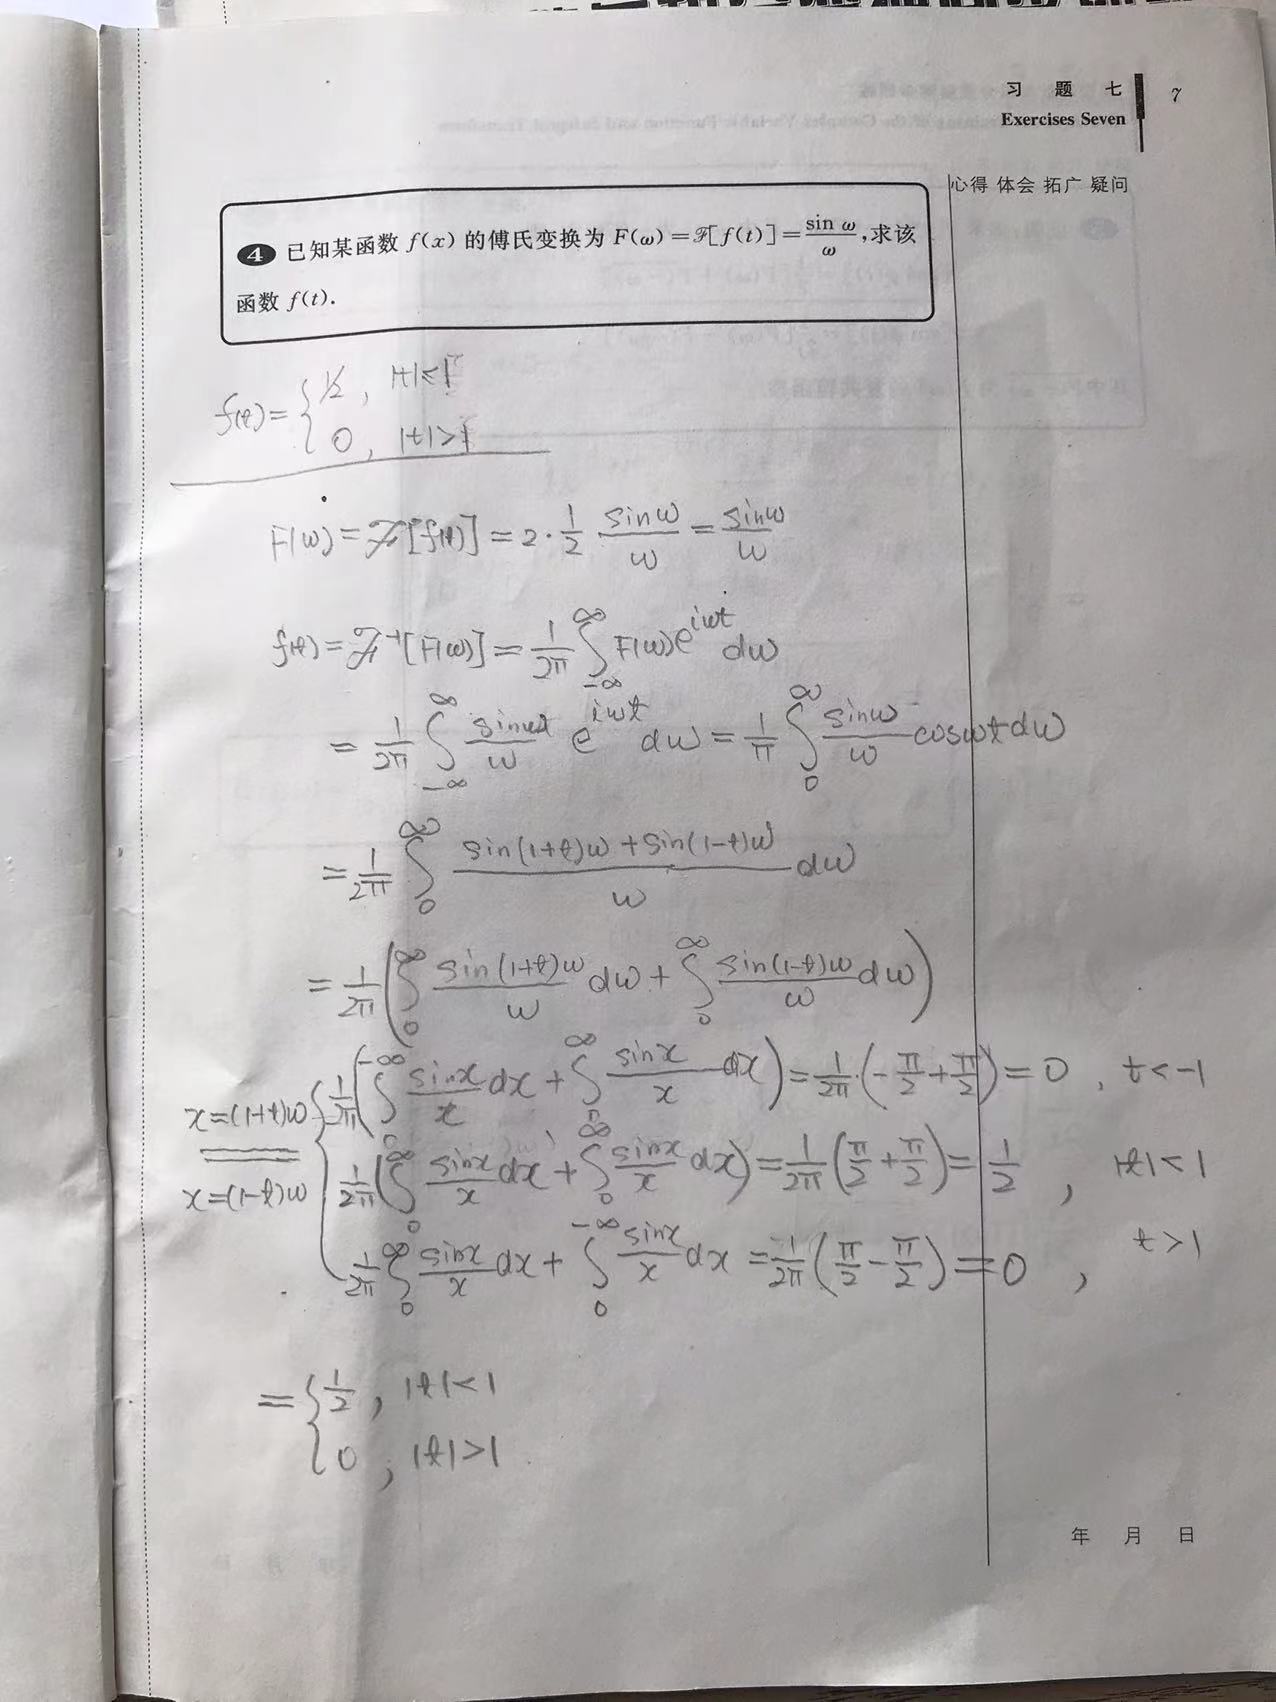 习 题 七
Exercises Seven
7
心得 体会 拓广 疑问
4 已知某函数 f(x) 的傅氏变换为 F(ω)=ℱ[f(t)]=sin ω/ω,求该
函数 f(t).
f(t)={1/2, |t|≤1
0, |t|>1
F(ω)=ℱ[f(t)]=2·1/2 sinω/ω=sinω/ω
f(t)=ℱ⁻¹[F(ω)]=1/2π ∫_{-∞}^{∞} F(ω)e^{iωt}dω
=1/2π ∫_{-∞}^{∞} sinωt/ω e^{iωt}dω=1/π ∫_0^∞ sinω/ω cosωt dω
=1/2π ∫_0^∞ (sin(1+t)ω+sin(1-t)ω)/ω dω
=1/2π(∫_0^∞ sin(1+t)ω/ω dω+∫_0^∞ sin(1-t)ω/ω dω)
x=(1+t)ω
x=(1-t)ω
{1/2π(∫_0^{-∞} sinx/x dx+∫_0^∞ sinx/x dx)=1/2π·(-π/2+π/2)=0, t<-1
1/2π(∫_0^∞ sinx/x dx+∫_0^∞ sinx/x dx)=1/2π(π/2+π/2)=1/2, |t|<1
1/2π ∫_0^∞ sinx/x dx+∫_0^{-∞} sinx/x dx=1/2π(π/2-π/2)=0, t>1
={1/2, |t|<1
0, |t|>1
年 月 日